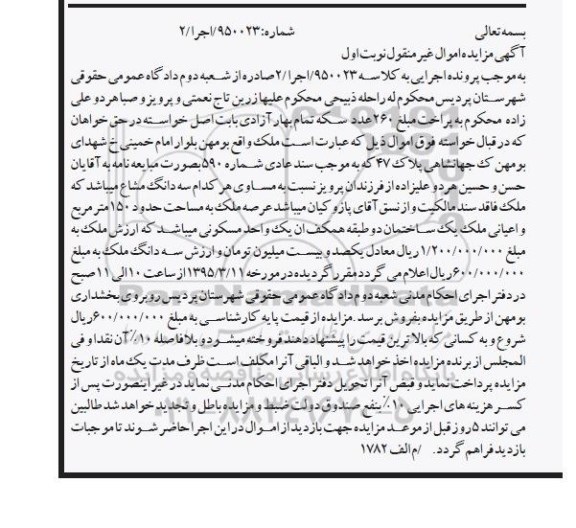 بسمه تعالی شماره:۹۵۰۰۲۳/اجرا/۲
آگهی مزایده اموال غیر منقول نوبت اول
به موجب پرونده اجرایی به کلاسه ۹۵۰۰۲۳/اجرا/۲صادره از شعبه دوم دادگاه عمومی حقوقی
شهرستان پردیس محکوم له راحله ذبیحی محکوم علیها زرین تاج نعمتی و پرویز و صبا هر دو علی
زاده محکوم به پراخت مبلغ ۲۶۰عدد سکه تمام بهار آزادی بابت اصل خواسته در حق خواهان
که در قبال خواسته فوق اموال ذیل که عبارت است ملک واقع بومهن بلوار امام خمینی خ شهدای
بومهن ک جهانشاهی پلاک ۴۷ که به موجب سند عادی شماره ۵۹۰بصورت مبایعه نامه به آقایان
حسن و حسین هر دو علیزاده از فرزندان پرویز نسبت به مساوی هر کدام سه دانگ مشاع میباشد که
ملک فاقد سند مالکیت و از نسق آقای پازوکیان میباشد عرصه ملک به مساحت حدود ۱۵۰متر مربع
و اعیانی ملک یک ساختمان دو طبقه همکف ان یک واحد مسکونی میباشد که ارزش ملک به
مبلغ ۱/۲۰۰/۰۰۰/۰۰۰ریال معادل یکصد و بیست میلیون تومان و ارزش سه دانگ ملک به مبلغ
۶۰۰/۰۰۰/۰۰۰ریال اعلام می گردد مقرر گردیده در مورخه ۱۳۹۵/۳/۱۱از ساعت ۱۰الی ۱۱صبح
در دفتر اجرای احکام مدنی شعبه دوم دادگاه عمومی حقوقی شهرستان پردیس روبروی بخشداری
بومهن از طریق مزایده بفروش برسد .مزایده از قیمت پایه کارشناسی به مبلغ ۶۰۰/۰۰۰/۰۰۰ریال
شروع و به کسانی که بالاترین قیمت را پیشنهاد دهند فروخته میشود و بلافاصله ۱۰٪آن نقدا و فی
المجلس از برنده مزایده اخذ خواهد شد و الباقی آنرا مکلف است ظرف مدت یک ماه از تاریخ
مزایده پرداخت نماید و قبض آنرا تحویل دفتر اجرای احکام مدنی نماید در غیر اینصورت پس از
کسر هزینه های اجرایی ۱۰٪بنفع صندوق دولت ضبط و مزایده باطل و تجدید خواهد شد طالبین
می توانند ۵روز قبل از موعد مزایده جهت بازدید از اموال در این اجرا حاضر شوند تا موجبات
بازدید فراهم گردد. /م الف ۱۷۸۲
ParsNamadData
پایگاه اطلاع رسانی مناقصه و مزایده
۰۲۱-۸۸۳۴۹۶۷۰-۵